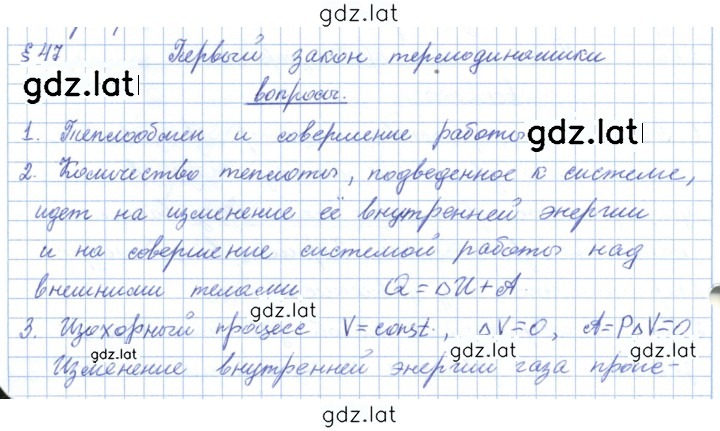 gdz.lat
§ 47 Первый закон термодинамики
gdz.lat
вопросы.
1. Теплообмен и совершение работы gdz.lat
2. Количество теплоты, подведенное к системе,
идет на изменение её внутренней энергии
и на совершение системой работы над
внешними телами Q = ΔU + A.
gdz.lat
3. Изохорный процесс V = const., ΔV = 0, A = PΔV = 0.
gdz.lat gdz.lat
Изменение внутренней энергии газа проис-
gdz.lat